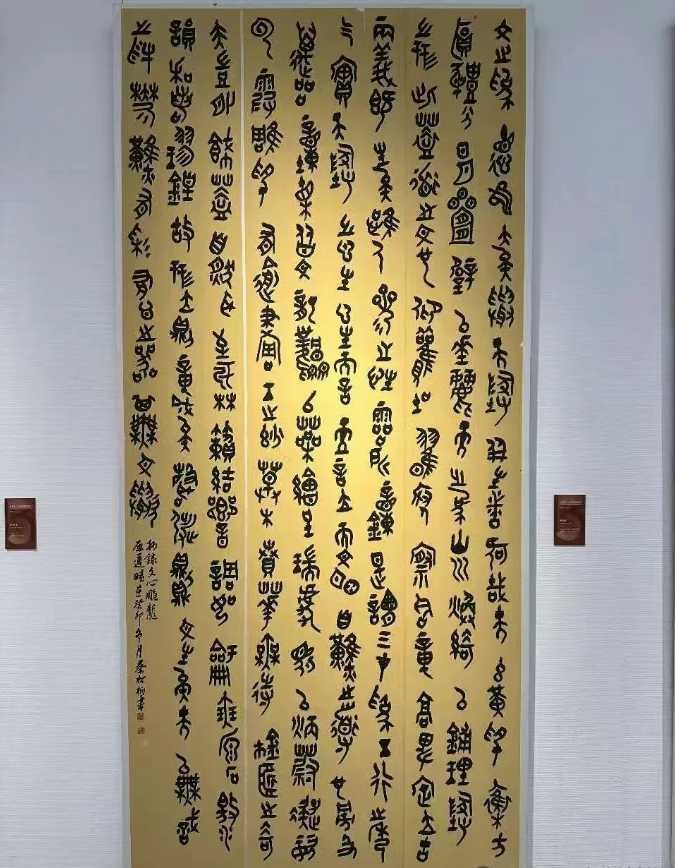 文之為德也大矣與天地並生者何哉夫玄黃色雜方
圓體分日月疊璧以垂麗天之象山川煥綺以鋪理地
之形此蓋道之文也仰觀吐曜俯察含章高卑定位故
兩儀既生矣惟人參之性靈所鍾是謂三才為五行之秀
實天地之心心生而言立言立而文明自然之道也傍及
萬品動植皆文龍鳳以藻繪呈瑞虎豹以炳蔚凝姿
雲霞雕色有逾畫工之妙草木賁華無待錦匠之奇
夫豈外飾蓋自然耳至於林籟結響調如竽瑟泉石激
韻和若球鍠故形立則章成矣聲發則文生矣夫以無識
之物鬱然有彩有心之器其無文歟
錄文心雕龍
原道 癸卯年月秦書